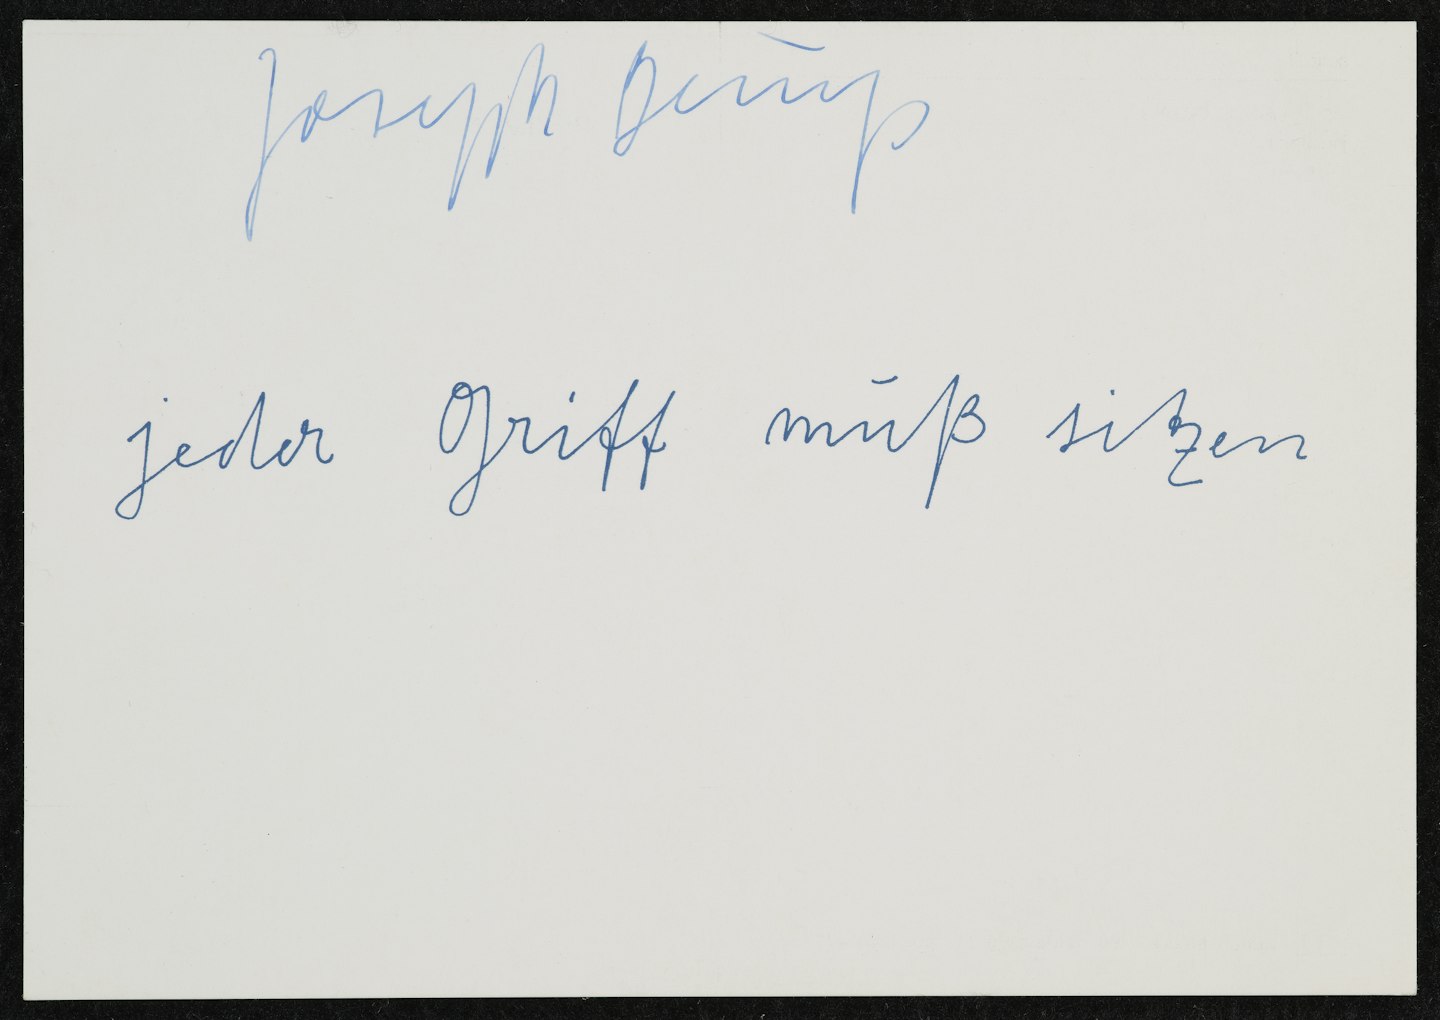 Joseph Beuys
jeder Griff muß sitzen